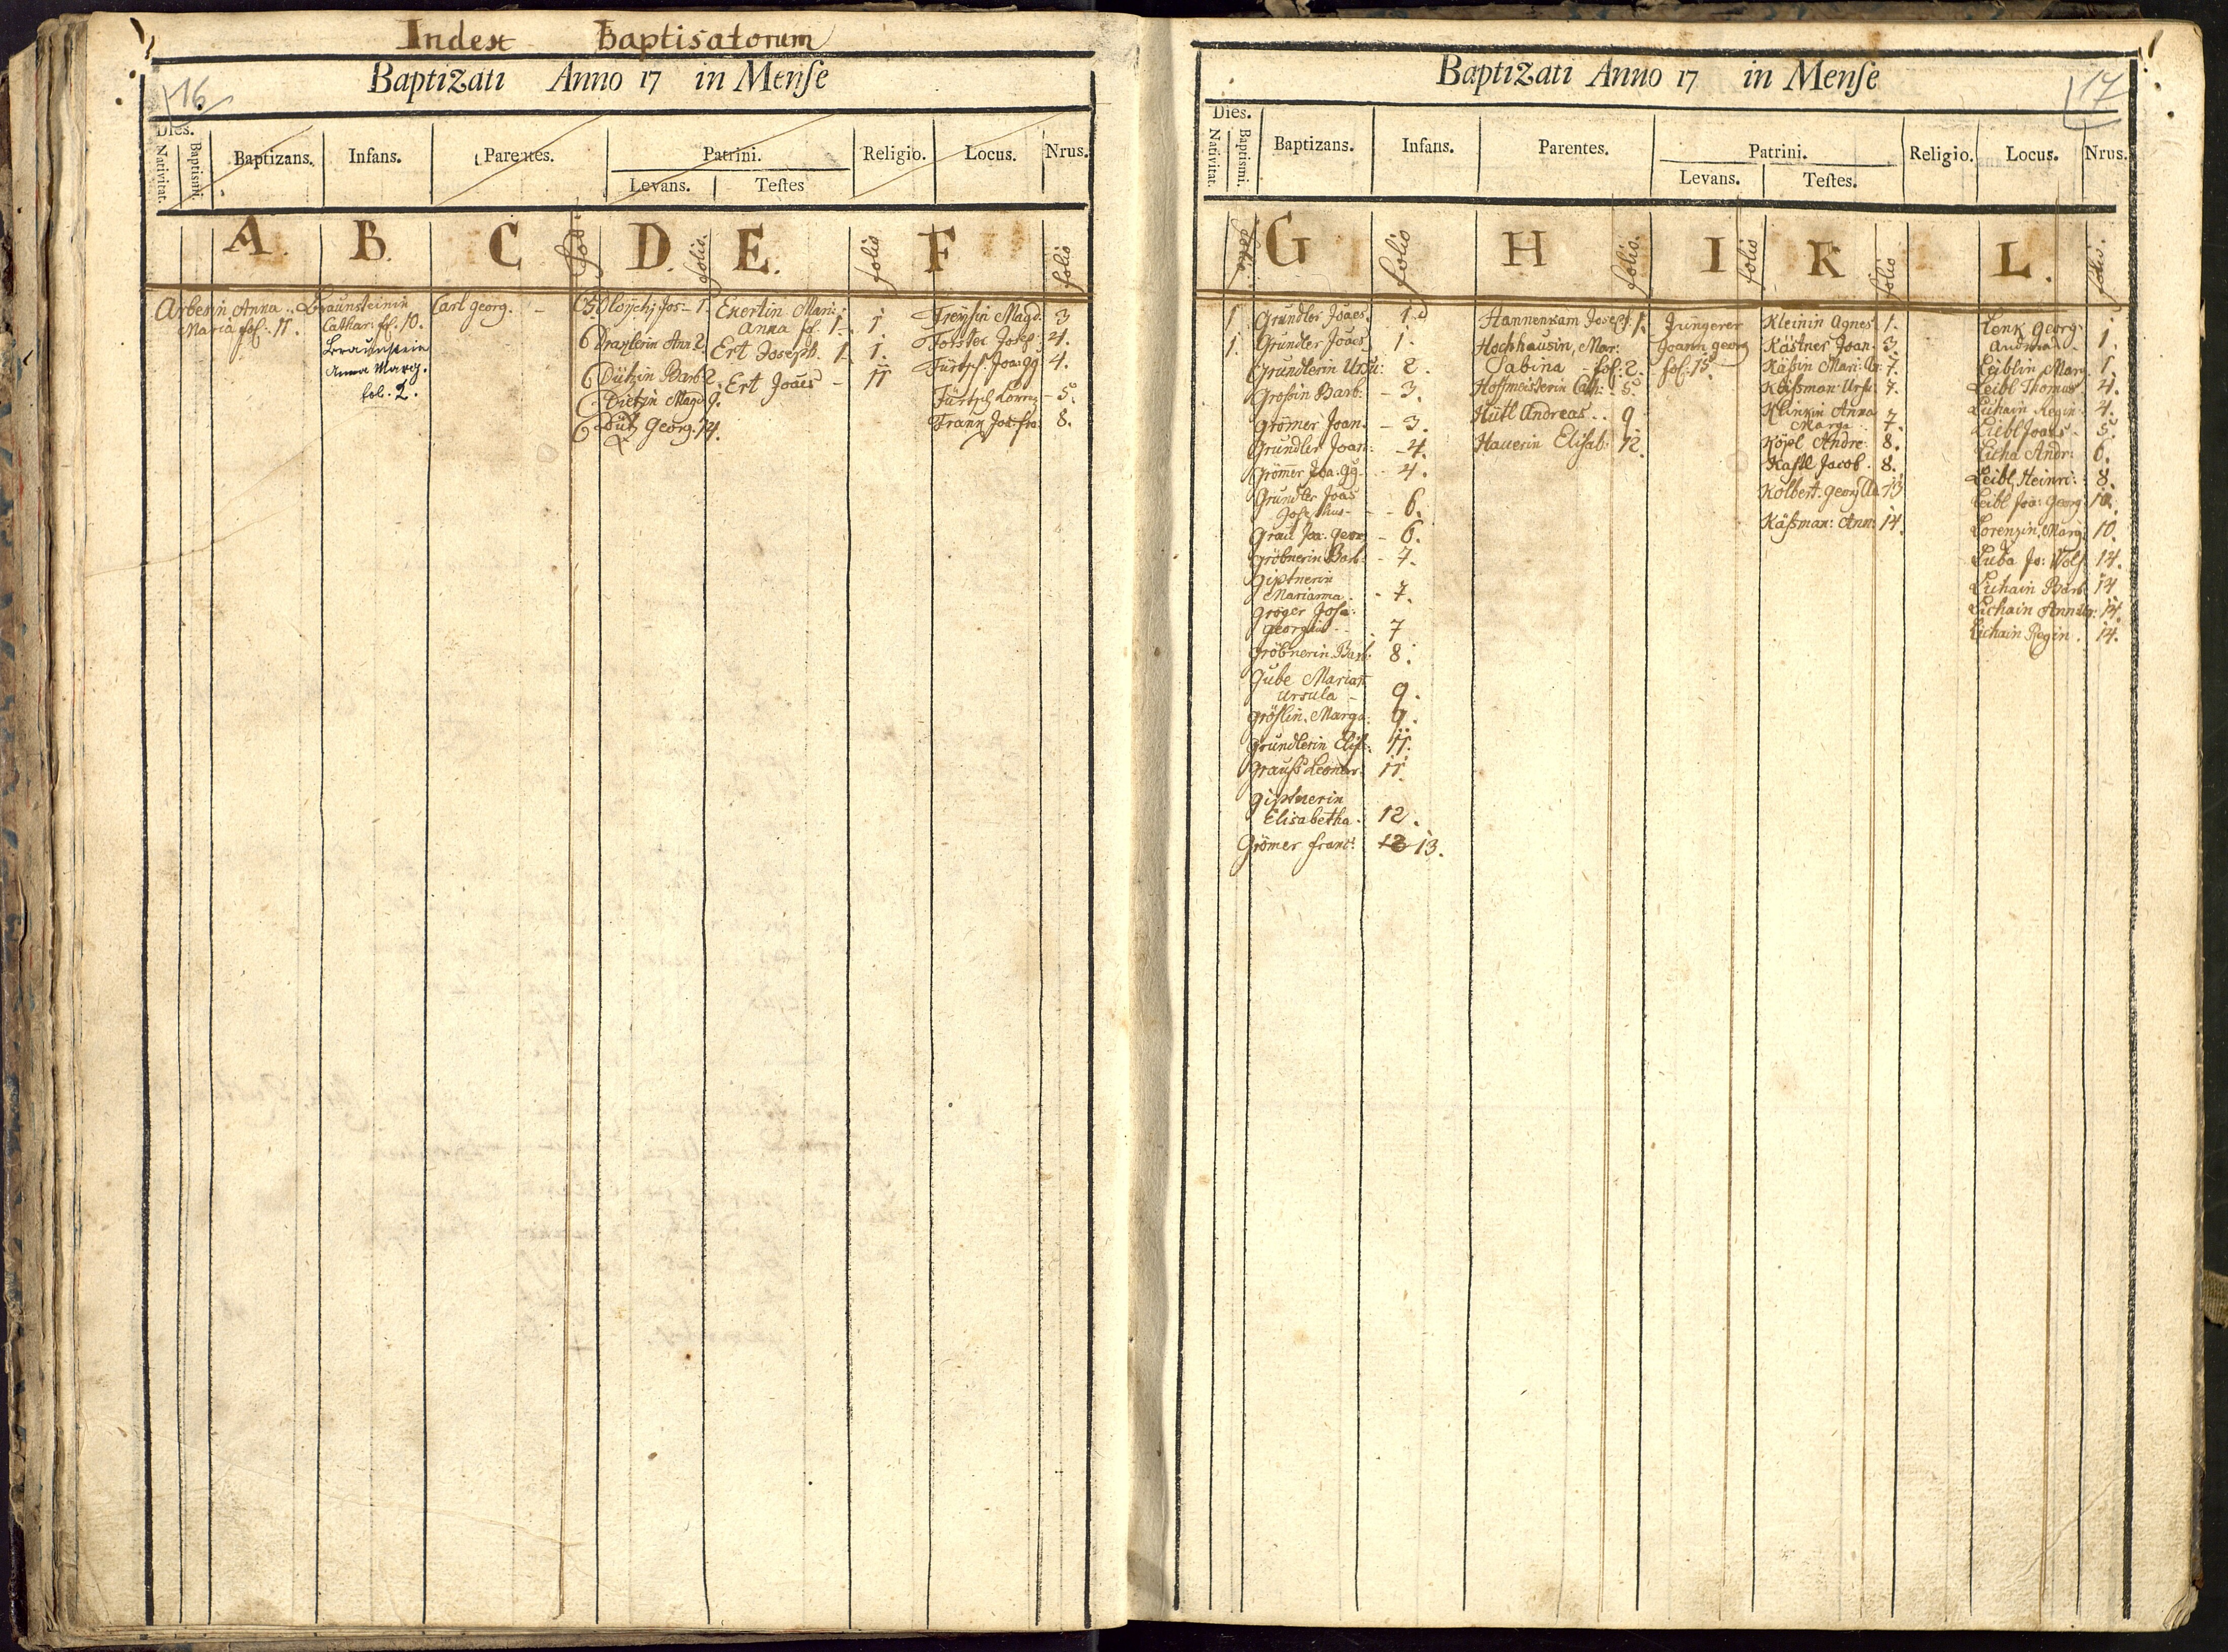 Index Baptisatorum
Baptizati Anno 17 in Menſe
16
Dies.
Nativitat.
Baptismi.
Baptizans.
Infans.
Parentes.
Patrini.
Levans.
Teſtes
Religio.
Locus.
Nrus.
A.
B.
C
folio
D.
folio.
E.
folio
F
folio
Arbesin Anna
Maria fol. 11.
Braunsteinin
Cathar: fol. 10.
Braunstein
Anna Marg.
fol. 2.
Carl Georg. -
Jos - 1.
Ann 2.
Dützin Barb: 2.
Dietzin Magd 9.
Dütz Georg. 14.
Exertin Mari:
Anna fol. 1. 1
Ert Joseph. 1. 1.
Ert Joaēs - 11
Freysin Magd. 3
Forster Josep: 4.
Fürtsch Joa: gg 4.
Fürtsch Lorenz - 5.
Frann Jos: fra: 8.
Baptizati Anno 17 in Menſe
17
Dies.
Nativitat.
Baptismi.
Baptizans.
Infans.
Parentes.
Patrini.
Levans.
Teſtes.
Religio.
Locus.
Nrus.
folio.
G
folio
H
folio.
I
folio
K
folio
L.
folio.
1 Grundler Joaēs. 1.
1. Grundler Joaēs 1.
Grundlerin Ursu: 2.
Großin Barb: - 3.
Grömer Joan - 3.
Grundler Joan: - 4.
Grömer Joa. gg - 4.
Grundler Joas
Josephus - - 6.
Grau Joa: Georg - 6.
Gröbnerin Barb: - 7.
Giptnerin
Marianna. - 7.
Gröger Josa:
Georgius - - 7
Gröbnerin Barb: 8.
Gube Marian
Ursula - 9.
Gröslin. Marga: 9.
Grundlerin Elis: 11.
Grauß Leonar: 11.
Giptnerin
Elisabetha. 12.
Grömer Franc: 12 13.
Hannenkam Joseph. 1.
Hochhausin, Mar:
Sabina - fol: 2.
Hoffmeisterin Cath: 5
Hütl Andreas.. 9
Hauerin Elisab: 12.
Jungerer
Joann georg
fol: 15
Kleinin Agnes. 1.
Kästner Joan. 3.
Käßin Mari: 7.
Käßman Ursu: 7.
Klinkin Anna
Marga. 7.
Köpl Andre: 8.
Kastl Jacob. 8.
Kolbert. georg 13
Käßman: Ann: 14.
Lenk Georg:
Andreas. 1.
Leiblin Marg. 1.
Leibl Thomas 4.
Lichain Regin: 4.
Leibl Joaēs - 5.
Licha Andr: 6.
Leibl, Heinri: 8.
Leibl Joa: Georg: 10.
Lorenzin, Marg: 10.
Luba Jo: Wolf: 14.
Lichain Barb: 14
Lichain Anna 14.
Lichain Regin. 14.